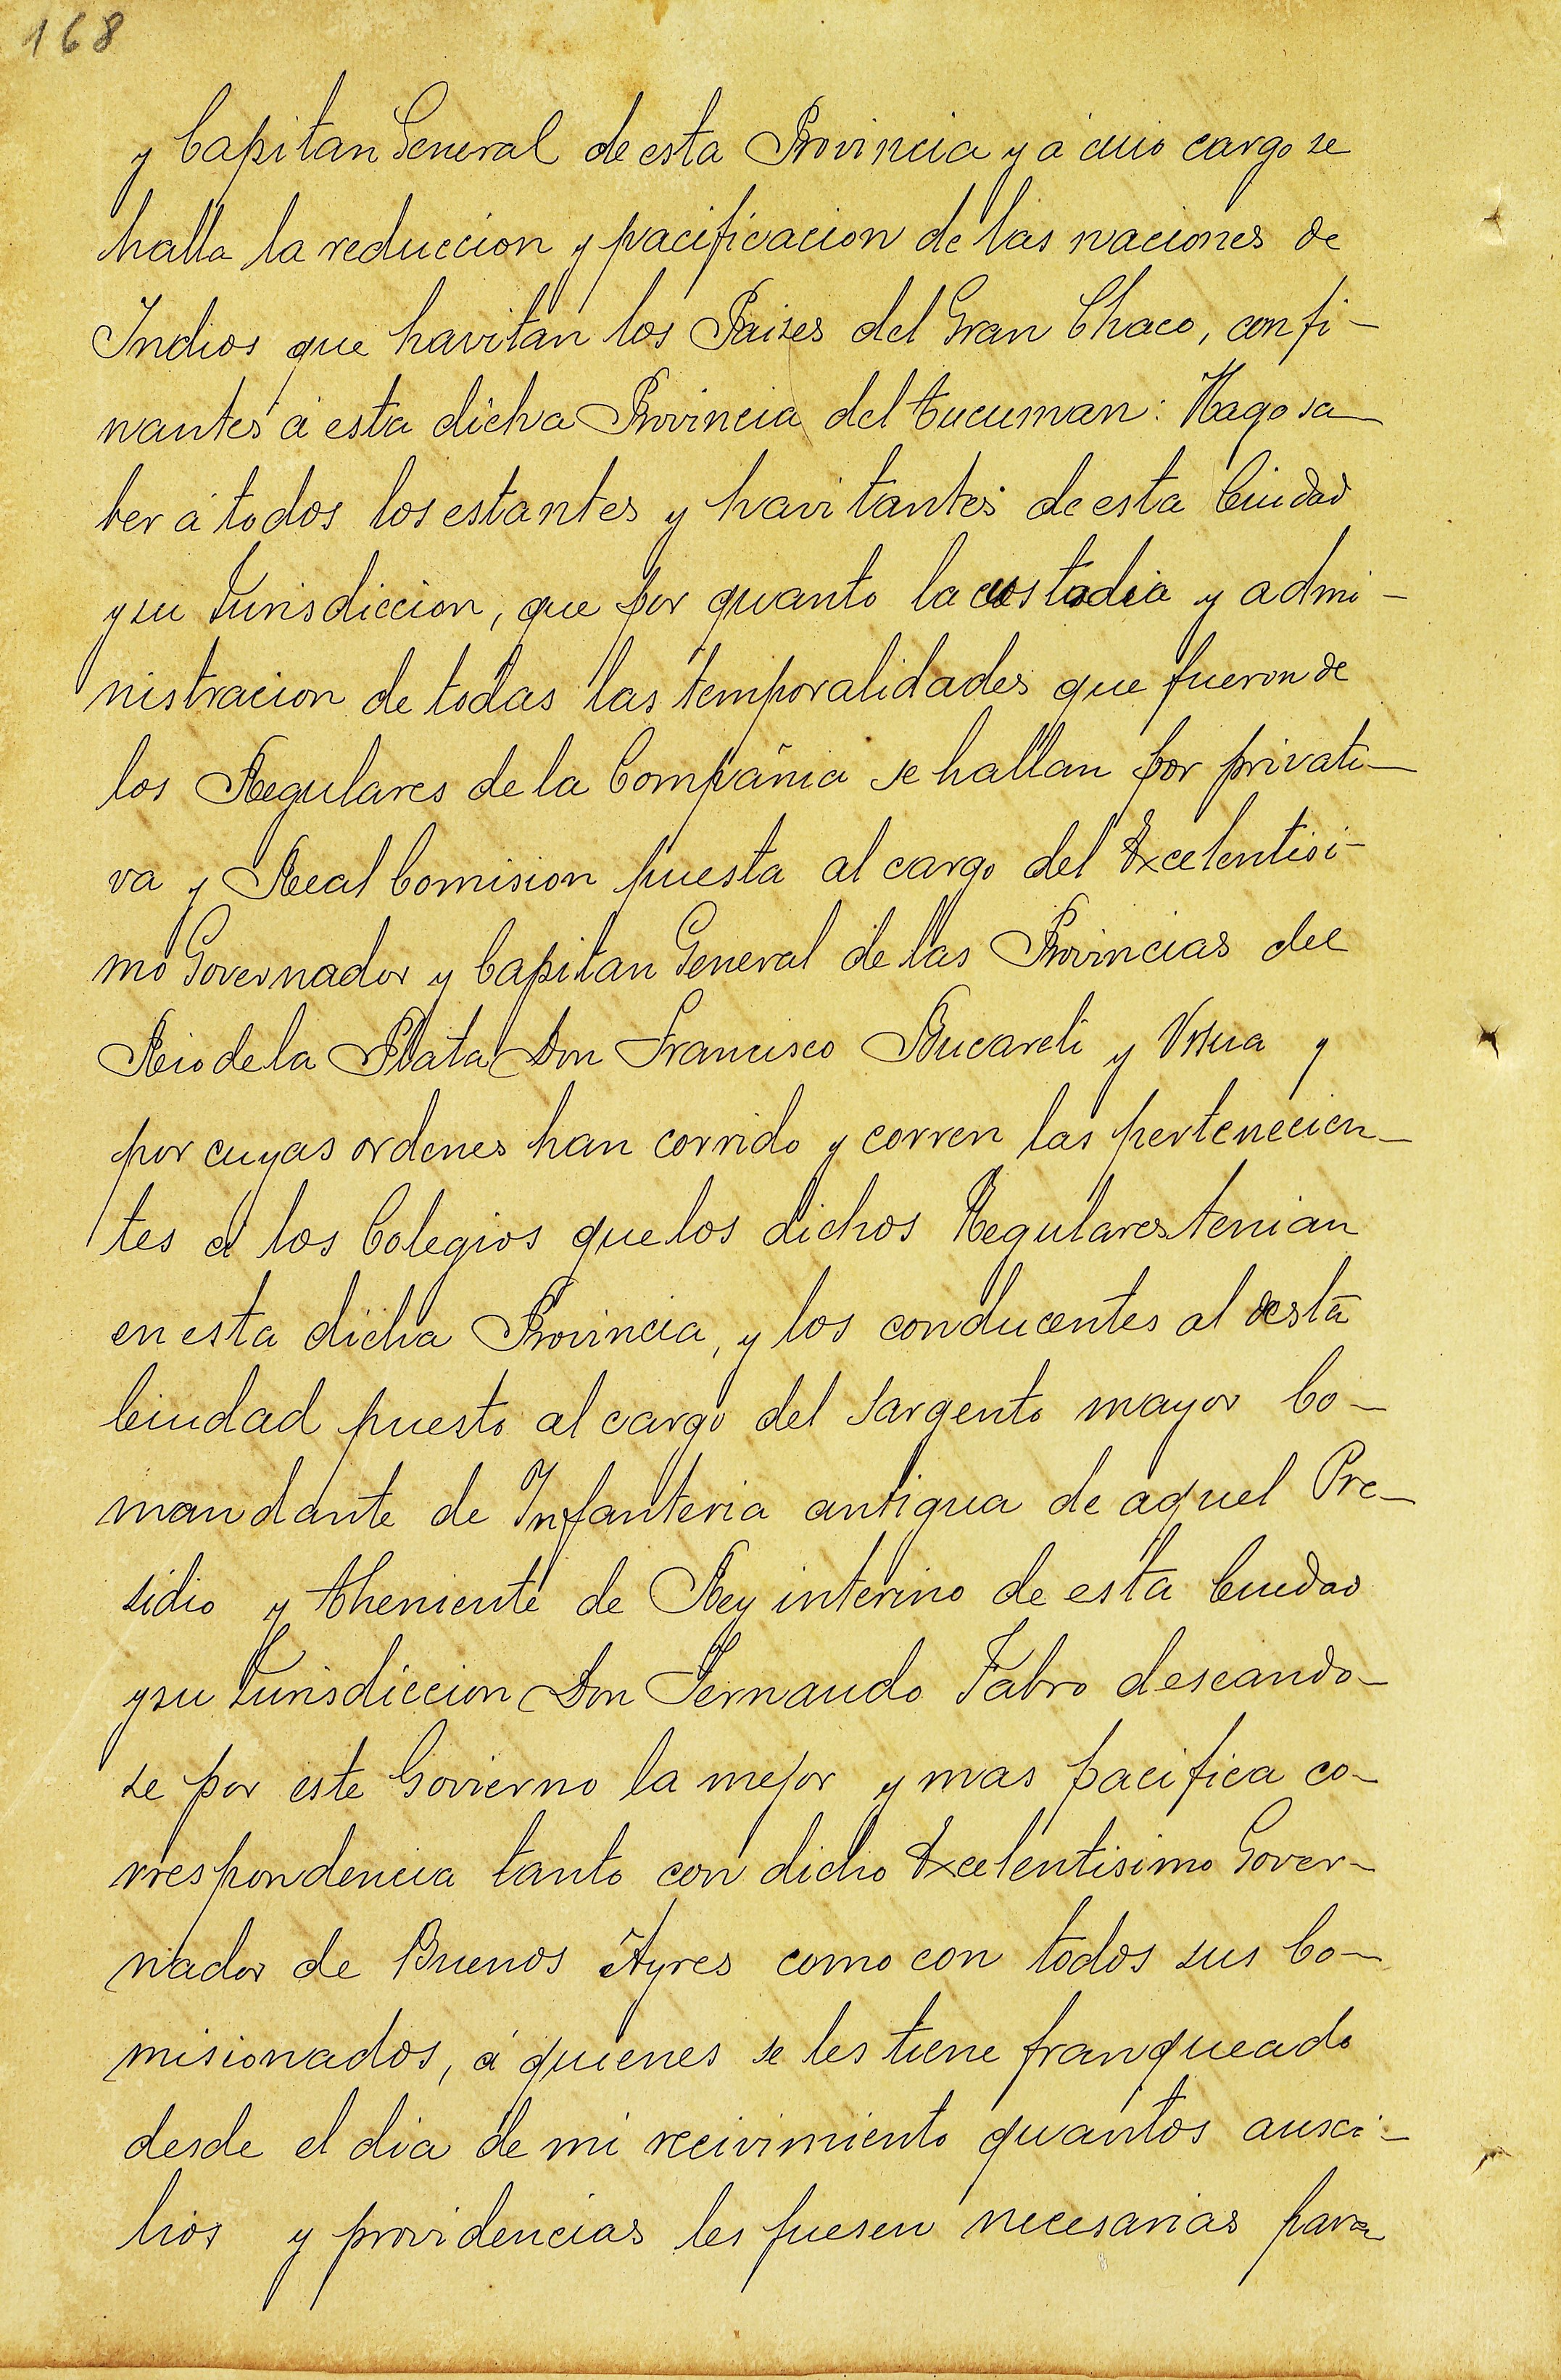 168
y Capitan General de esta Provincia y á cuio cargo se
halla la reduccion y pacificacion de las naciones de
Indios que havitan los Paises del Gran Chaco, confi-
nantes á esta dicha Provincia del Tucuman: Hago sa-
ber á todos los estantes y havitantes de esta Ciudad
y su Jurisdiccion, que por quanto la custodia y admi-
nistracion de todas las temporalidades que fueron de
los Regulares de la Compañia se hallan por privati-
va y Real Comision puesta al cargo del Excelentisi-
mo Governador y Capitan General de las Provincias del
Rio de la Plata Don Francisco Bucareli y Ursua y
por cuyas ordenes han corrido y corren las pertenecien-
tes á los Colegios que los dichos Regulares tenian
en esta dicha Provincia, y los conducentes al desta
Ciudad puesto al cargo del sargento mayor Co-
mandante de Infanteria antigua de aquel Pre-
sidio y Theniente de Rey interino de esta Ciudad
y su Jurisdiccion Don Fernando Fabro deseando-
se por este Govierno la mejor y mas pacifica co-
rrespondencia tanto con dicho Excelentisimo Gover-
nador de Buenos Ayres como con todos sus Co-
misionados, á quienes se les tiene franqueado
desde el dia de mi recivimiento quantos ausci-
lios y providencias les fuesen necesarias para